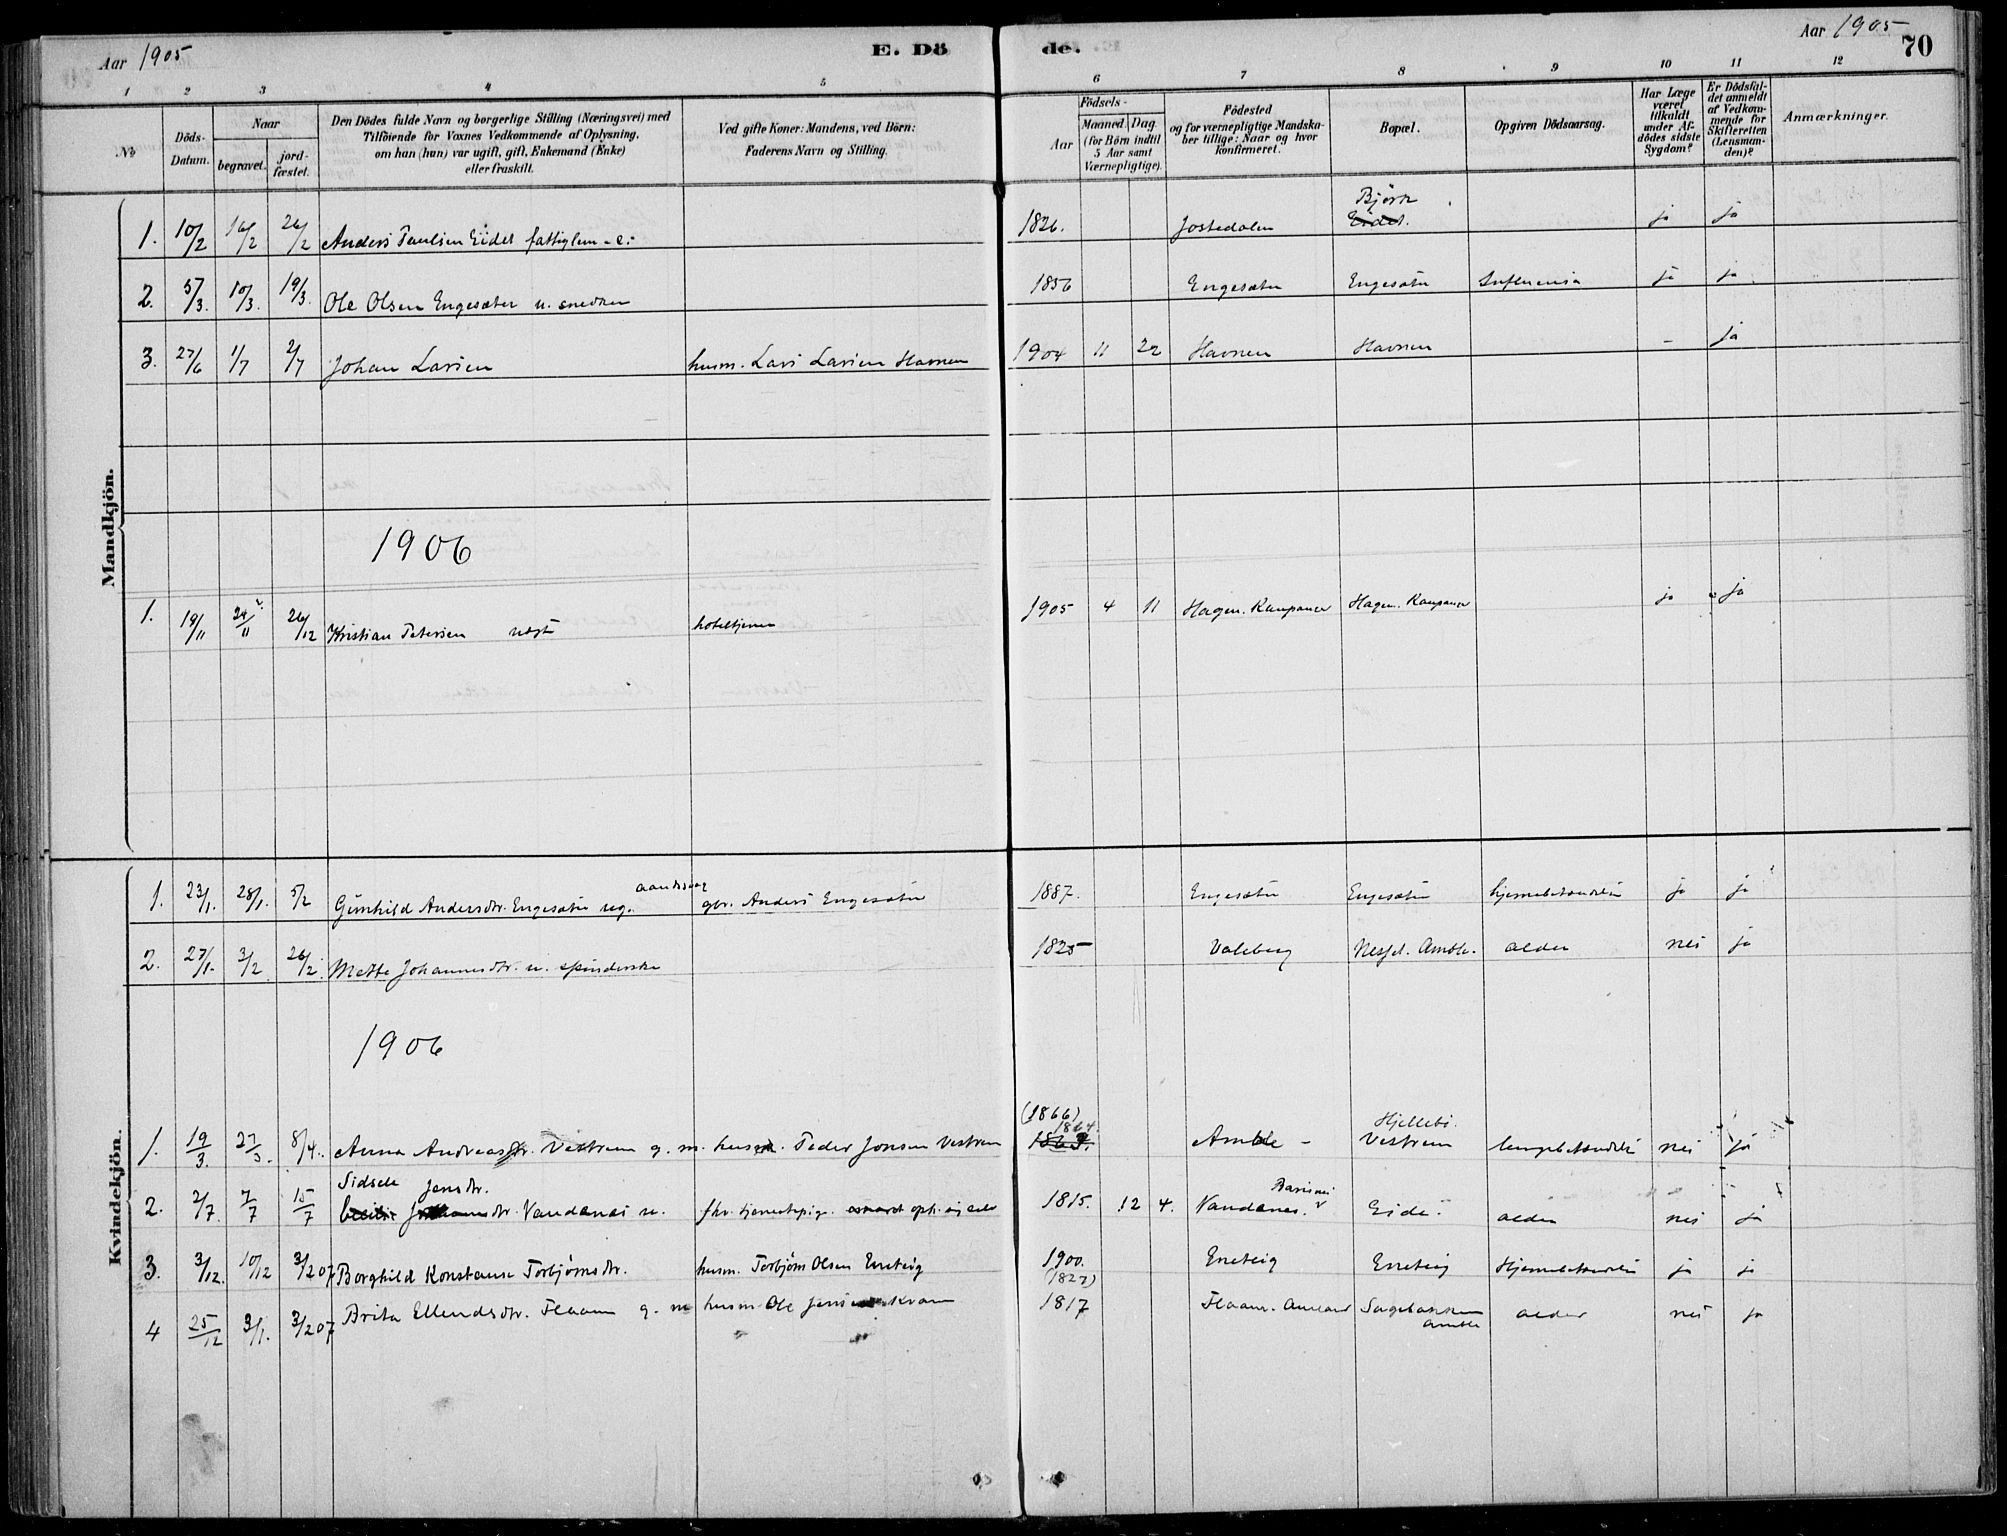 Aar 1905
E. Dö
de.
Aar 1905
70
1 2 3 4 5 6 7 8 9 10 11 12
№
Döds-
Datum.
Naar
begravet.
jord-
fæstet.
Den Dödes fulde Navn og borgerlige Stilling (Næringsvei) med
Tilföiende for Voxnes Vedkommende af Oplysning,
om han (hun) var ugift, gift, Enkemand (Enke)
eller fraskilt.
Ved gifte Koner: Mandens, ved Börn:
Faderens Navn og Stilling.
Födsels-
Aar
Maaned. Dag.
(for Börn indtil
5 Aar samt
Værnepligtige).
Födested
og for værnepligtige Mandska-
ber tillige: Naar og hvor
konfirmeret.
Bopæl.
Opgiven Dödsaarsag.
Har Læge
været
tilkaldt
under Af-
dödes sidste
Sygdom?
Er Dödsfal-
det anmeldt
af Vedkom-
mende for
Skifteretten
(Lensman-
den)?
Anmærkninger.
Mandkjön.
Björk
1. 10/2 16/2 26/2 Anders Paulsen Eidet fattiglem - e. 1826. Jostedalen Eidet. ja ja
2. 5/3. 10/3. 19/3. Ole Olsen Engesæter u. snedker 1856 Engesæter Engesæter Influensa ja ja
3. 27/6 1/7 2/7 Johan Larsen husm. Lars Larsen Havnen 1904 11 22 Havnen Havnen - ja
1906
1. 19/11 24/11 26/12 Kristian Petersen hoteltjener 1905 4 11 Hagen. Kaupanger Hagen. Kaupanger ja ja
Kvindekjön.
1. 23/1. 28/1. 5/2 Gunhild Andersdtr. Engesæter ug. gbr. Anders Engesæter 1887. Engesæter Engesæter hjernebetændelse ja ja
2. 27/1. 3/2 26/2. Mette Johannesdtr. u. spinderske 1825 Valeberg Amble. alder nei ja
1906
(1866)
1864.
Hjellebö.
1. 19/3. 27/3. 8/4. Anna Andreasdtr. Vestrem g. m. husm. Peder Jonsen Vestrem Amble - Vestrem lungebetændelse nei ja
Sidsele Jensdtr.
2. 2/7. 7/7 15/7 Vandanes u. fhv. tjenestepige. 1815. 12 4. Vandanes. Eide. alder nei ja
3. 3/12. 10/12 3/2 07 Borghild Konstanse Torbjørnsdtr. husm. Torbjørn Olsen Eneteig 1900. Eneteig Eneteig Hjernebetændelse ja ja
(1827)
4 25/12 3/1. 3/2 07 Brita Ellendsdtr. Flaam g. m husm Ole Jensen Kvam 1817 Flaam. Aurland Sagebakken alder nei ja
Amble